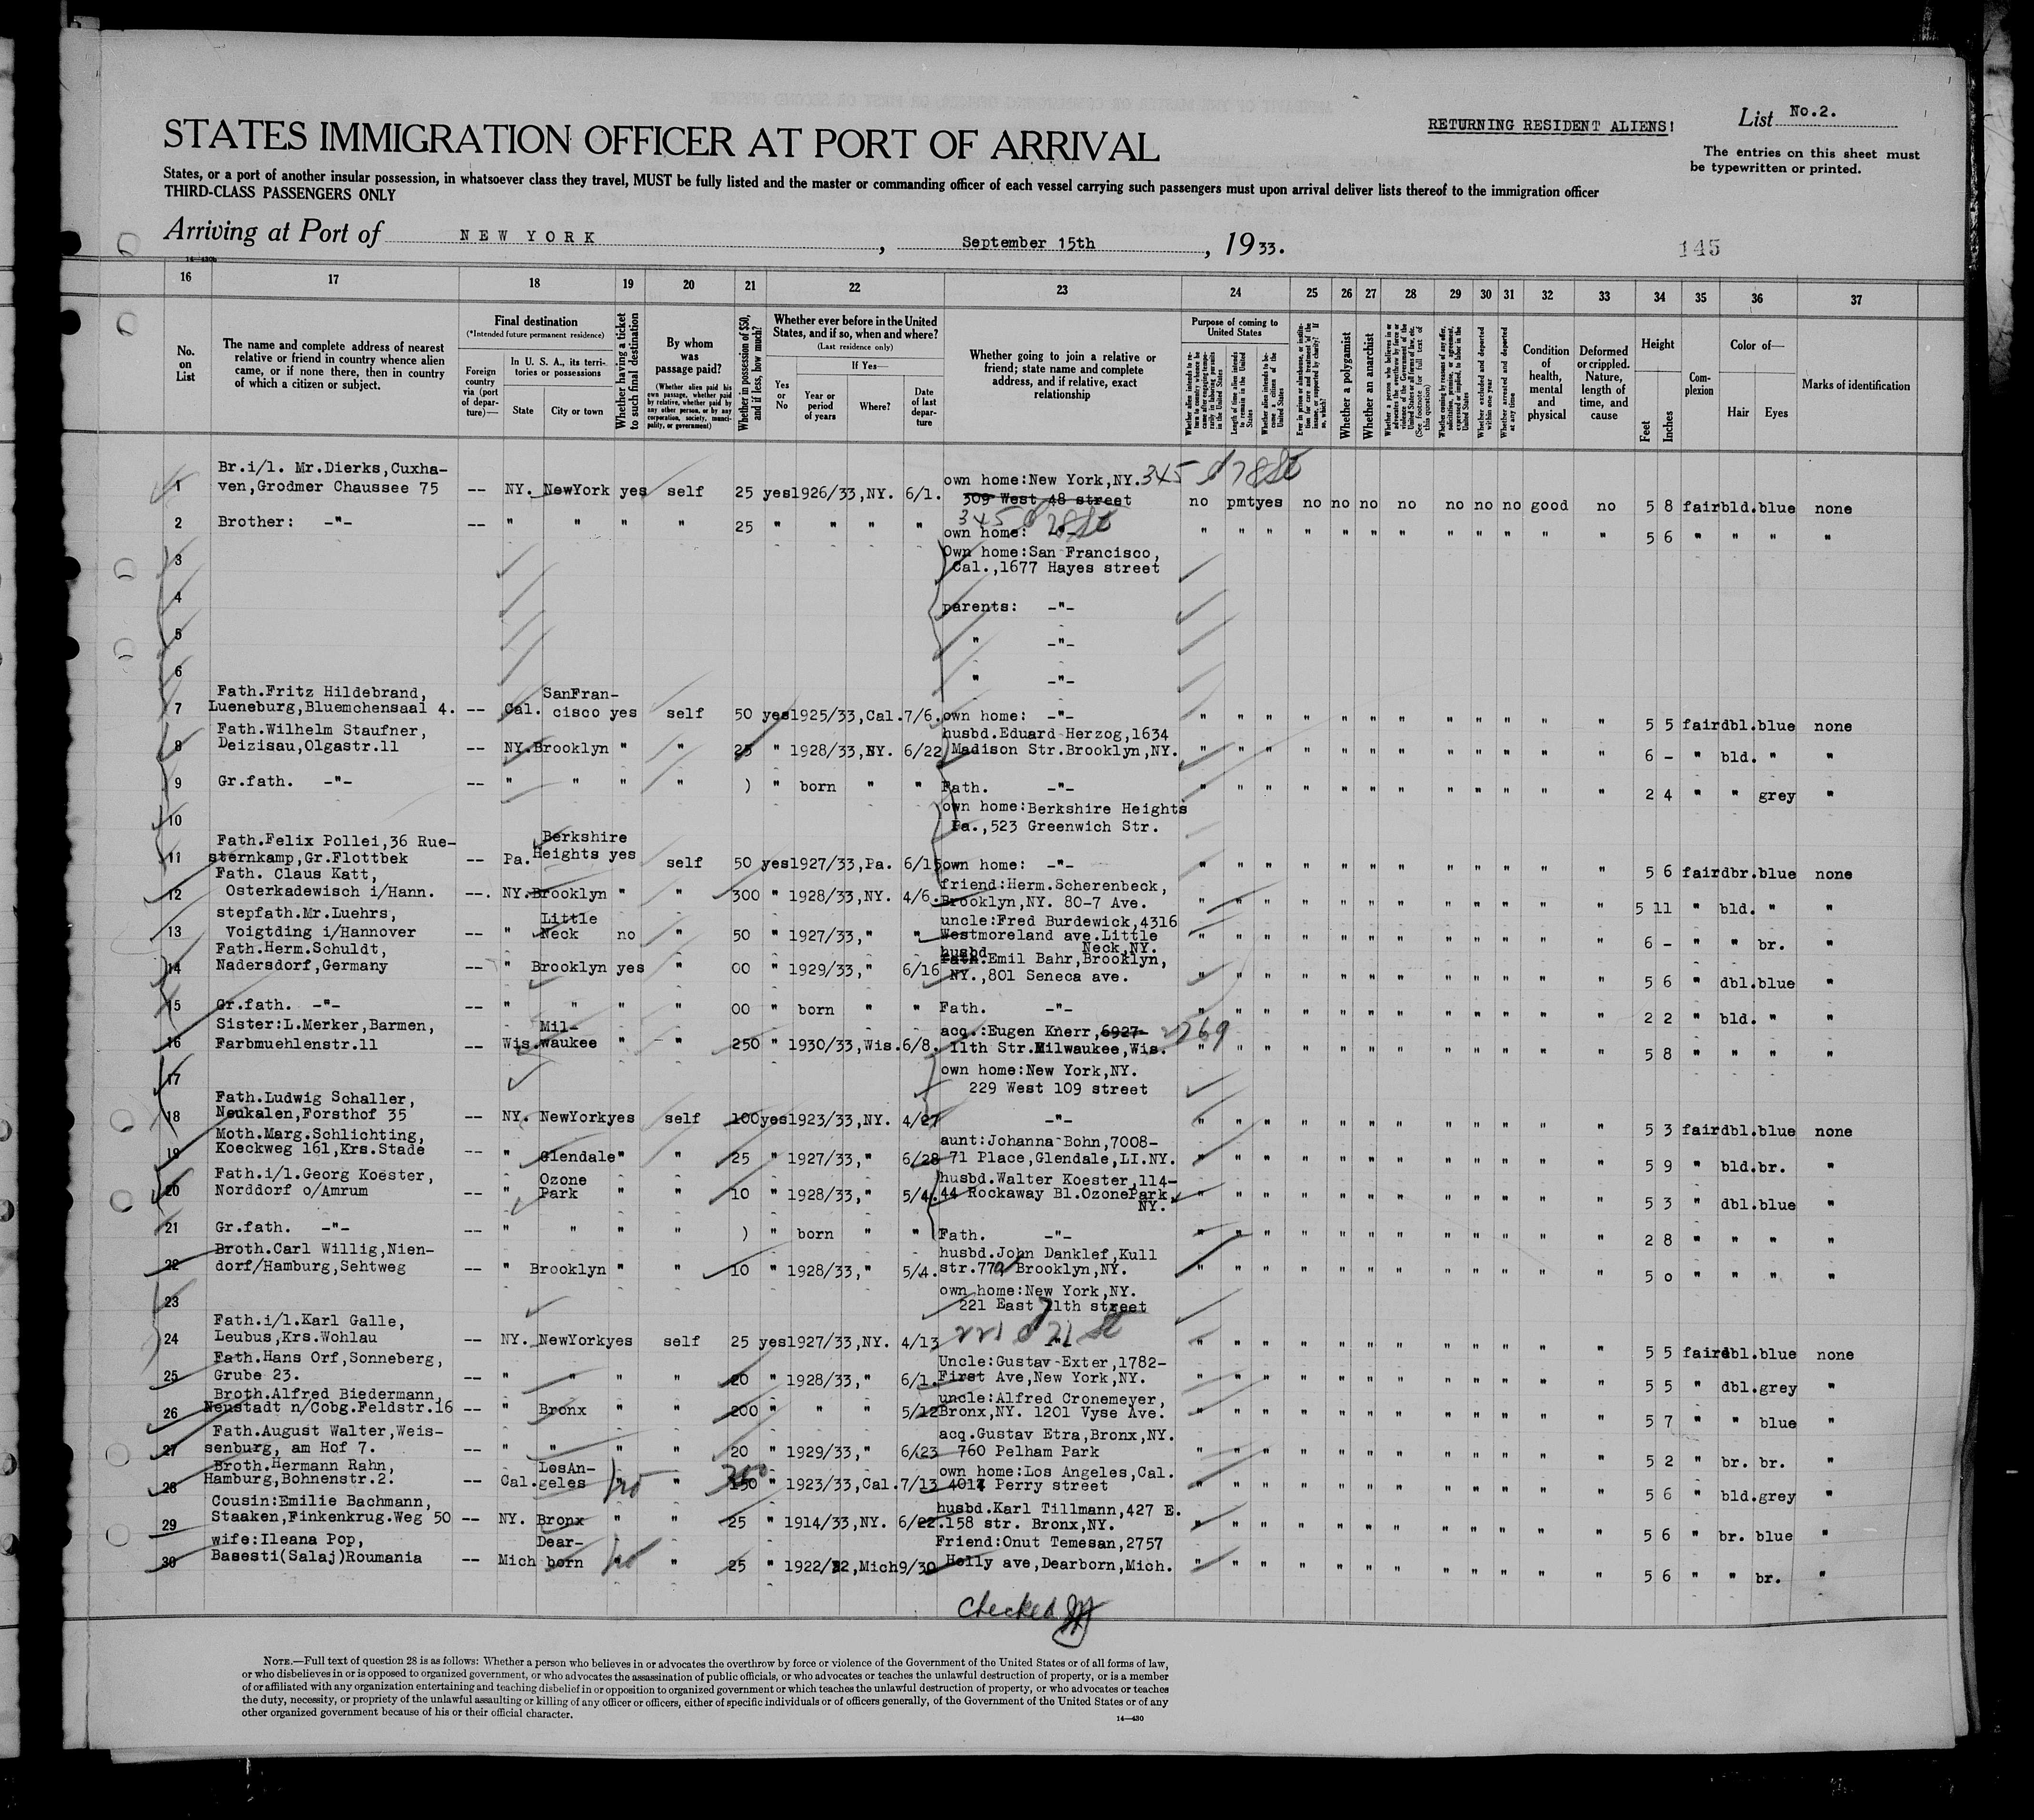 RETURNING RESIDENT ALIENS!
List No.2.
STATES IMMIGRATION OFFICER AT PORT OF ARRIVAL
The entries on this sheet must
be typewritten or printed.
States, or a port of another insular possession, in whatsoever class they travel, MUST be fully listed and the master or commanding officer of each vessel carrying such passengers must upon arrival deliver lists thereof to the immigration officer
THIRD-CLASS PASSENGERS ONLY
Arriving at Port of NEW YORK, September 15th, 1933.
145
16 17 18 19 20 21 22 23 24 25 26 27 28 29 30 31 32 33 34 35 36 37
No. on List
The name and complete address of nearest relative or friend in country whence alien came, or if none there, then in country of which a citizen or subject.
Final destination
(*Intended future permanent residence)
Foreign country via (port of departure)—
In U. S. A., its territories or possessions
State
City or town
Whether having a ticket to such final destination
By whom was passage paid?
(Whether alien paid his own passage, whether paid by relative, whether paid by any other person, or by any corporation, society, municipality, or government)
Whether in possession of $50, and if less, how much?
Whether ever before in the United States, and if so, when and where?
(Last residence only)
Yes or No
If Yes—
Year or period of years
Where?
Date of last departure
Whether going to join a relative or friend; state name and complete address, and if relative, exact relationship
Purpose of coming to United States
Whether alien intends to return to country whence he came after engaging temporarily in laboring pursuits in the United States
Length of time alien intends to remain in the United States
Whether alien intends to become a citizen of the United States
Ever in prison or almshouse, or institution for care and treatment of the insane, or supported by charity? If so, which?
Whether a polygamist
Whether an anarchist
Whether a person who believes in or advocates the overthrow by force or violence of the Government of the United States or all forms of law, etc. (See footnote for full text of this question)
Whether coming by reason of any offer, solicitation, promise, or agreement, expressed or implied, to labor in the United States
Whether excluded and deported within one year
Whether arrested and deported at any time
Condition of health, mental and physical
Deformed or crippled. Nature, length of time, and cause
Height
Feet
Inches
Complexion
Color of—
Hair
Eyes
Marks of identification
1 Br.i/l. Mr.Dierks,Cuxha-
ven,Grodmer Chaussee 75 -- NY. NewYork yes self 25 yes 1926/33,NY. 6/1. own home:New York,NY. 345
309 West 48 street no pmt yes no no no no no no no good no 5 8 fair bld. blue none
2 Brother: -"- -- " " " " 25 " " " " own home: -"- " " " " " " " " " " " " 5 6 " " " "
3 Own home:San Francisco,
Cal.,1677 Hayes street
4 parents: -"-
5 " -"-
6 " -"-
7 Fath.Fritz Hildebrand,
Lueneburg,Bluemchensaal 4. -- Cal. SanFran-
cisco yes self 50 yes 1925/33,Cal. 7/6. own home: -"- " " " " " " " " " " " " 5 5 fair dbl. blue none
8 Fath.Wilhelm Staufner,
Deizisau,Olgastr.11 -- NY. Brooklyn " " 25 " 1928/33,NY. 6/22 husbd.Eduard Herzog,1634
Madison Str.Brooklyn,NY. " " " " " " " " " " " " 6 - " bld. " "
9 Gr.fath. -"- -- " " " " ) " born " " Fath. -"- " " " " " " " " " " " " 2 4 " " grey "
10 own home:Berkshire Heights
Pa.,523 Greenwich Str.
11 Fath.Felix Pollei,36 Rue-
sternkamp,Gr.Flottbek -- Pa. Berkshire
Heights yes self 50 yes 1927/33,Pa. 6/15 own home: -"- " " " " " " " " " " " " 5 6 fair dbr. blue none
12 Fath. Claus Katt,
Osterkadewisch i/Hann. --. NY. Brooklyn " " 300 " 1928/33,NY. 4/6. friend:Herm.Scherenbeck,
Brooklyn,NY. 80-7 Ave. " " " " " " " " " " " " 5 11 " bld. " "
13 stepfath.Mr.Luehrs,
Voigtding i/Hannover -- " Little
Neck no " 50 " 1927/33," " uncle:Fred Burdewick,4316
Westmoreland ave.Little
Neck,NY. " " " " " " " " " " " " 6 - " " br. "
14 Fath.Herm.Schuldt,
Nadersdorf,Germany -- " Brooklyn yes " 00 " 1929/33," 6/16 husbd.
Fath.Emil Bahr,Brooklyn,
NY.,801 Seneca ave. " " " " " " " " " " " " 5 6 " dbl. blue "
15 Gr.fath. -"- -- " " " " 00 " born " " Fath. -"- " " " " " " " " " " " " 2 2 " bld. " "
16 Sister:L.Merker,Barmen,
Farbmuehlenstr.11 -- Wis. Mil-
waukee " " 250 " 1930/33,Wis. 6/8. acq.:Eugen Knerr,6927- 2769
11th Str.Milwaukee,Wis. " " " " " " " " " " " " 5 8 " " " "
17 own home:New York,NY.
229 West 109 street
18 Fath.Ludwig Schaller,
Neukalen,Forsthof 35 -- NY. NewYork yes self 100 yes 1923/33,NY. 4/27 -"- " " " " " " " " " " " " 5 3 fair dbl. blue none
19 Moth.Marg.Schlichting,
Koeckweg 161,Krs.Stade -- " Glendale " " 25 " 1927/33," 6/28 aunt:Johanna Bohn,7008-
71 Place,Glendale,LI.NY. " " " " " " " " " " " " 5 9 " bld. br. "
20 Fath.i/l.Georg Koester,
Norddorf o/Amrum -- " Ozone
Park " " 10 " 1928/33," 5/4. husbd.Walter Koester,114-
44 Rockaway Bl.OzonePark,
NY. " " " " " " " " " " " " 5 3 " dbl. blue "
21 Gr.fath. -"- -- " " " " ) " born " " Fath. -"- " " " " " " " " " " " " 2 8 " " " "
22 Broth.Carl Willig,Nien-
dorf/Hamburg,Sehtweg -- " Brooklyn " " 10 " 1928/33," 5/4. husbd.John Danklef,Kull
str.77a Brooklyn,NY. " " " " " " " " " " " " 5 o " " " "
23 own home:New York,NY.
221 East 71th street
24 Fath.i/l.Karl Galle,
Leubus,Krs.Wohlau -- NY. NewYork yes self 25 yes 1927/33,NY. 4/13 221 E 71 St " " " " " " " " " " " " 5 5 fair dbl. blue none
25 Fath.Hans Orf,Sonneberg,
Grube 23. -- " " " " 20 " 1928/33," 6/1. Uncle:Gustav Exter,1782-
First Ave,New York,NY. " " " " " " " " " " " " 5 5 " dbl. grey "
26 Broth.Alfred Biedermann,
Neustadt n/Cobg.Feldstr.16 -- " Bronx " " 200 " " " 5/12 uncle:Alfred Cronemeyer,
Bronx,NY. 1201 Vyse Ave. " " " " " " " " " " " " 5 7 " " blue "
27 Fath.August Walter,Weis-
senburg, am Hof 7. -- " " " " 20 " 1929/33," 6/23 acq.Gustav Etra,Bronx,NY.
760 Pelham Park " " " " " " " " " " " " 5 2 " br. br. "
28 Broth.Hermann Rahn,
Hamburg,Bohnenstr.2. -- Cal. LosAn-
geles no " 150 " 1923/33,Cal. 7/13 own home:Los Angeles,Cal.
4017 Perry street " " " " " " " " " " " " 5 6 " bld. grey "
29 Cousin:Emilie Bachmann,
Staaken,Finkenkrug.Weg 50 -- NY. Bronx " " 25 " 1914/33,NY. 6/22. husbd.Karl Tillmann,427 E.
158 str. Bronx,NY. " " " " " " " " " " " " 5 6 " br. blue "
30 wife:Ileana Pop,
Basesti(Salaj)Roumania -- Mich Dear-
born no " 25 " 1922/32,Mich 9/30 Friend:Onut Temesan,2757
Holly ave,Dearborn,Mich. " " " " " " " " " " " 5 6 " " br. "
Checked
NOTE.—Full text of question 28 is as follows: Whether a person who believes in or advocates the overthrow by force or violence of the Government of the United States or of all forms of law,
or who disbelieves in or is opposed to organized government, or who advocates the assassination of public officials, or who advocates or teaches the unlawful destruction of property, or is a member
of or affiliated with any organization entertaining and teaching disbelief in or opposition to organized government or which teaches the unlawful destruction of property, or who advocates or teaches
the duty, necessity, or propriety of the unlawful assaulting or killing of any officer or officers, either of specific individuals or of officers generally, of the Government of the United States or of any
other organized government because of his or their official character.
14—430